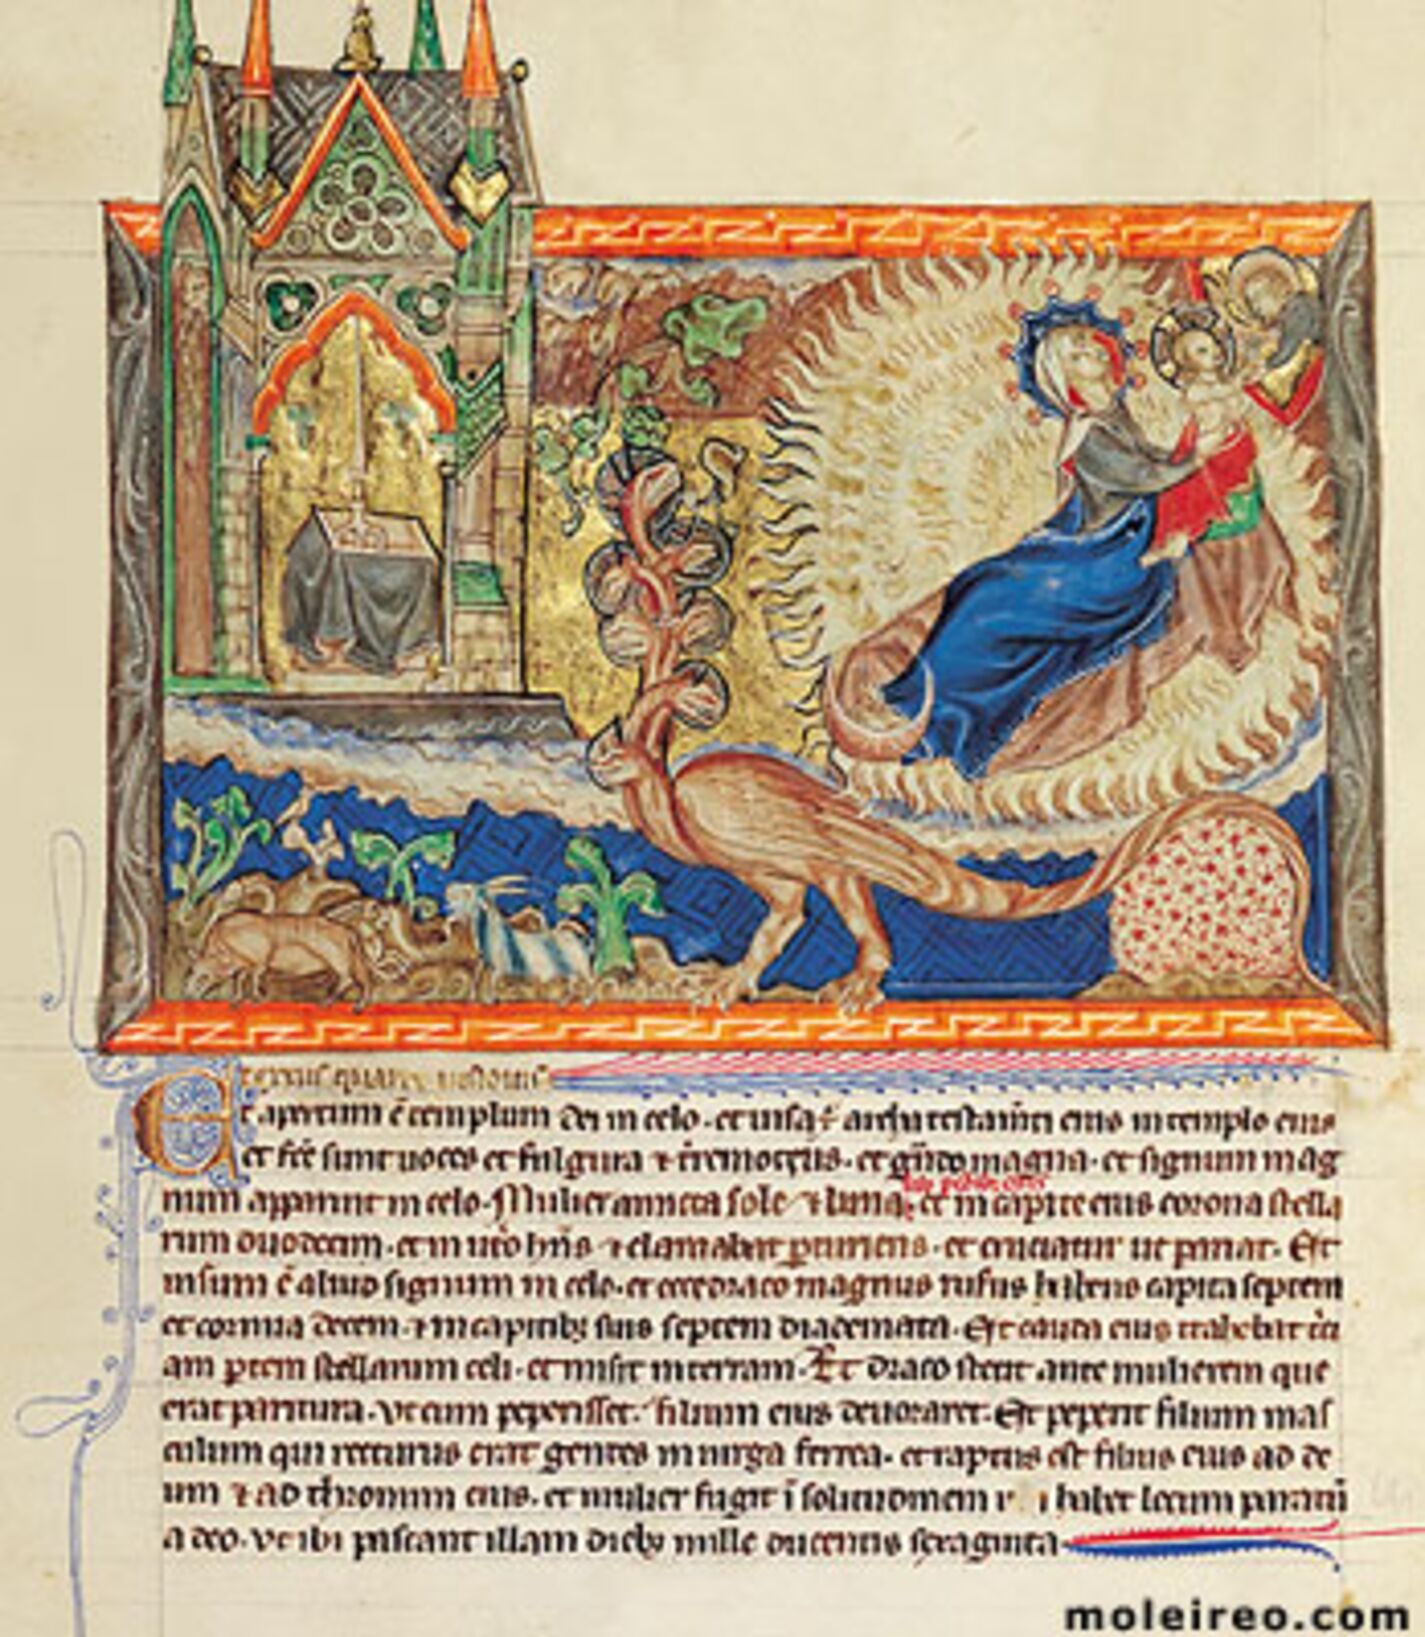 Textus quarte uisionis
Et apertum ē templum dei in celo. et uisa ÷ archa testam̄ti eius in templo eius
et fc̄e sunt uoces et fulgura ⁊ t̄remotus. et gͣndo magna. et signum mag
num apparuit in celo. Mulier amicta sole ⁊ luna. et in capite eius corona stella
sub pedib; eius
rum duodecim. et in ut̄o hn̄s ⁊ clamabat ꝑturiens. et cruciatur ut pariat. Et
uisum ē aliud signum in celo. et ecce draco magnus rufus habens capita septem
et cornua decem. ⁊ in capitib; suis septem diademata. Et cauda eius trahebat t̄ci
am ꝑtem stellarum celi. et misit in terram. Et draco stetit ante mulierem que
erat paritura. ut cum peperisset. filium eius deuoraret. Et peperit filium mas
culum qui recturus erat gentes in uirga ferrea. et raptus est filius eius ad de
um ⁊ ad thronum eius. et mulier fugit ī solitudinem habet locum paratū
a deo. ut ibi pascant illam dieb; mille ducentis sexaginta
moleireo.com